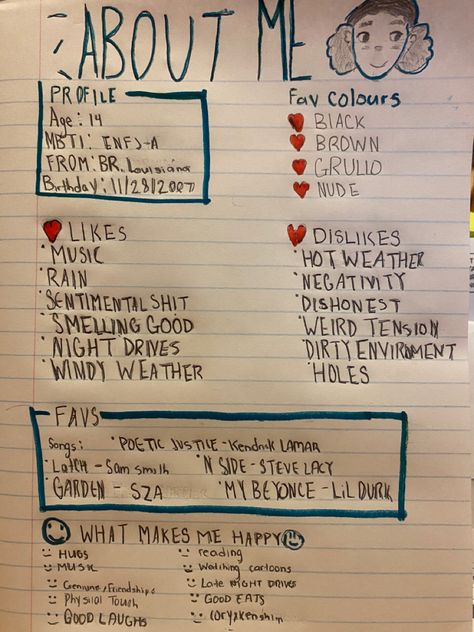 ABOUT ME
PROFILE
Age: 14
MBTI: ENFJ-A
FROM: BR, Louisiana
Birthday: 11/28/2007
Fav Colours
BLACK
BROWN
GRULLO
NUDE
LIKES
MUSIC
RAIN
SENTIMENTAL SHIT
SMELLING GOOD
NIGHT DRIVES
WINDY WEATHER
DISLIKES
HOT WEATHER
NEGATIVITY
DISHONEST
WEIRD TENSION
DIRTY ENVIROMENT
HOLES
FAVS
Songs: POETIC JUSTICE - Kendrick LAMAR
Latch - Sam smith N SIDE - STEVE LACY
GARDEN - SZA MY BEYONCE - LIL DURK
WHAT MAKES ME HAPPY
HUGS
MUSIC
Genuine friendships
Physical Touch
GOOD LAUGHS
reading
Watching cartoons
Late NIGHT DRIVE
GOOD EATS
Coryxkenshin